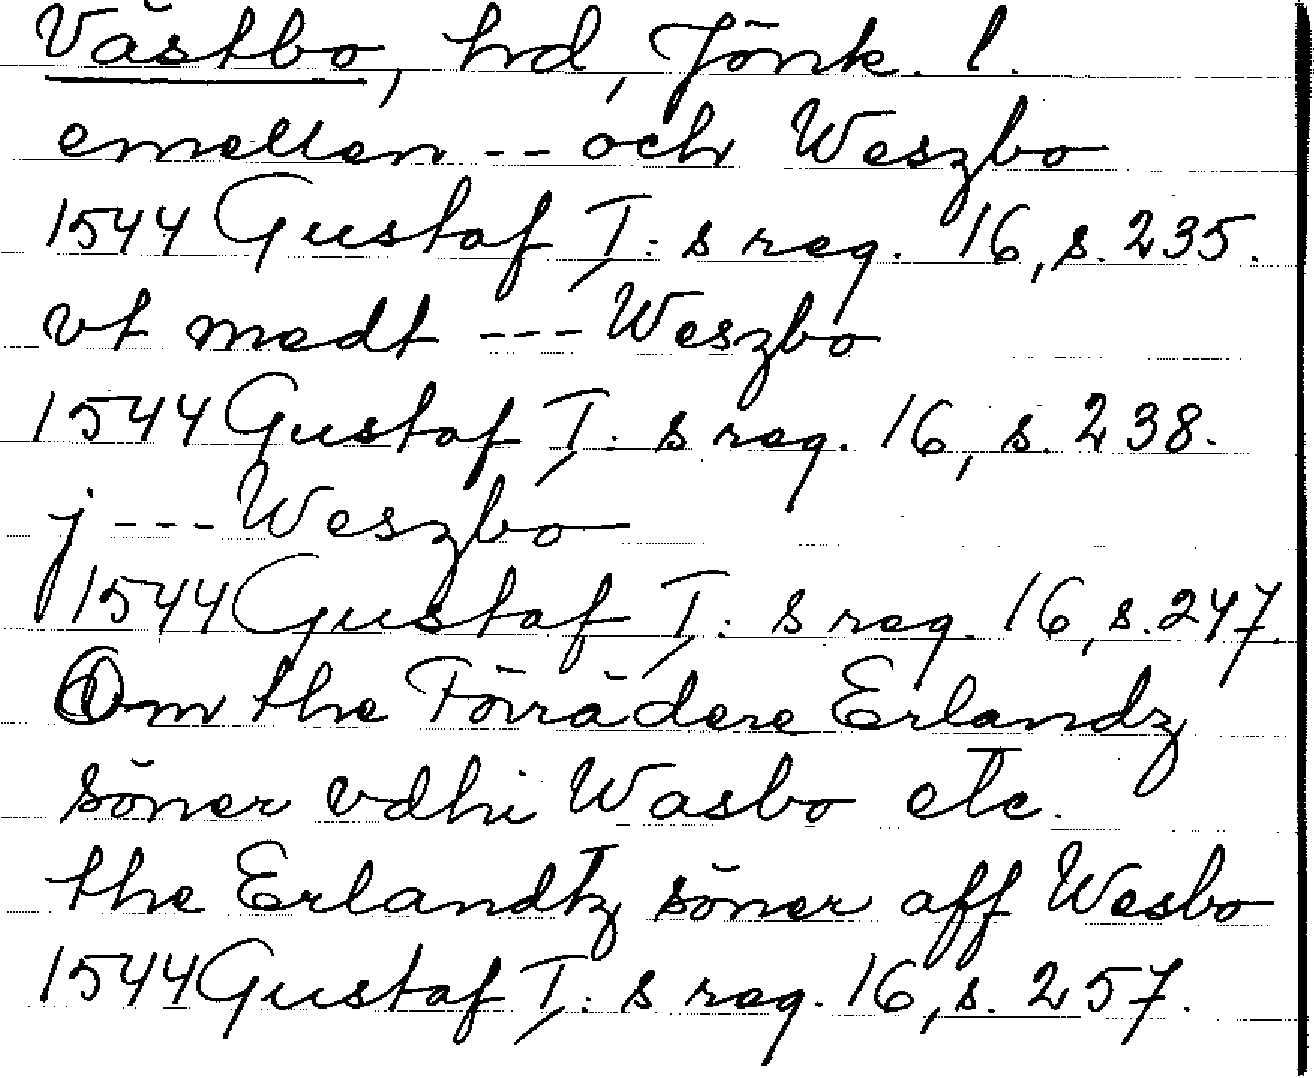 Västbo, hd, Jönk. l.
emellen -- och Weszbo
1544 Gustaf I: s reg. 16, s. 235.
vt medt --- Weszbo
1544 Gustaf I: s reg. 16, s. 238.
j --- Weszbo
1544 Gustaf I: s reg. 16, s. 247.
Om the Förrädere Erlandz
söner vdhi Wasbo etc.
the Erlandtz söner aff Wesbo
1544 Gustaf I: s reg. 16, s. 257.